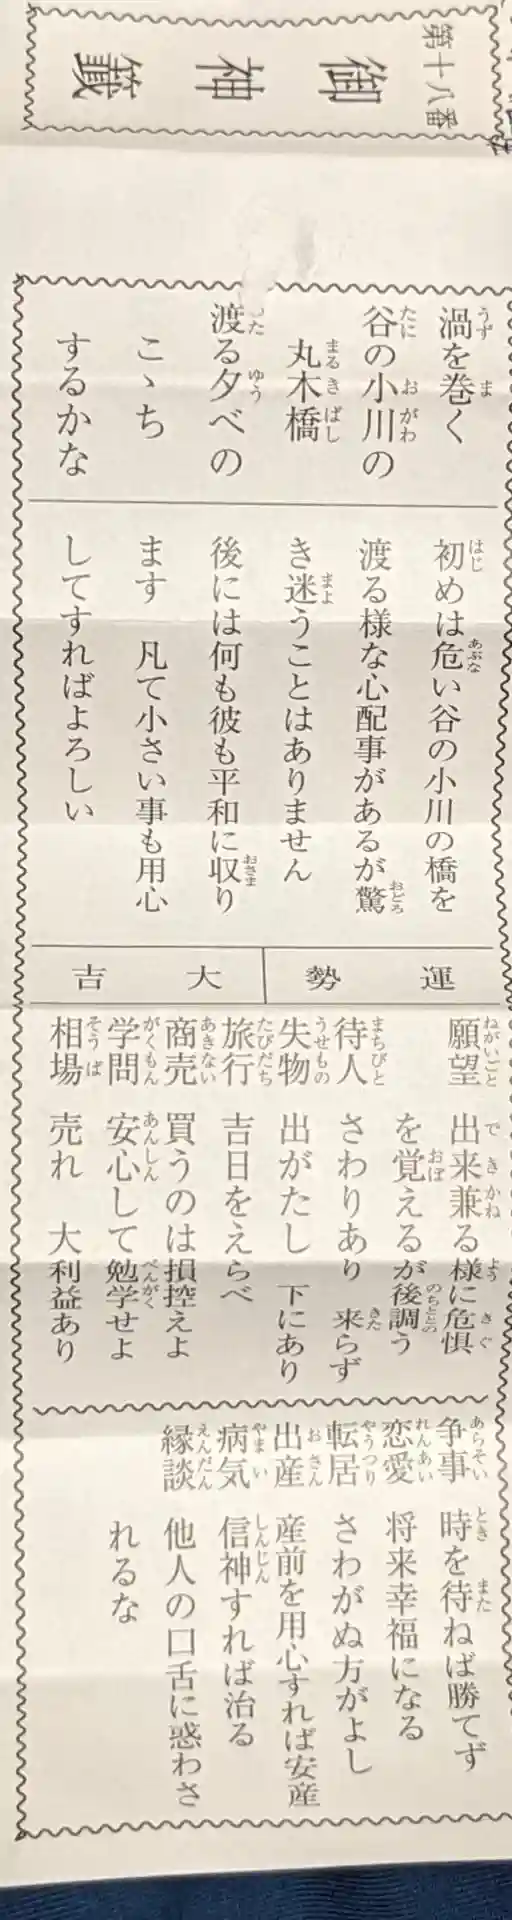 第十八番
御神籤
渦を巻く
谷の小川の
丸木橋
渡る夕べの
こゝち
するかな
初めは危い谷の小川の橋を
渡る様な心配事があるが驚
き迷うことはありません
後には何も彼も平和に収り
ます　凡て小さい事も用心
してすればよろしい
運勢
大吉
願望　出来兼る様に危惧
を覚えるが後調う
待人　さわりあり　来らず
失物　出がたし　下にあり
旅行　吉日をえらべ
商売　買うのは損控えよ
学問　安心して勉学せよ
相場　売れ　大利益あり
争事　時を待ねば勝てず
恋愛　将来幸福になる
転居　さわがぬ方がよし
出産　産前を用心すれば安産
病気　信神すれば治る
縁談　他人の口舌に惑わさ
れるな